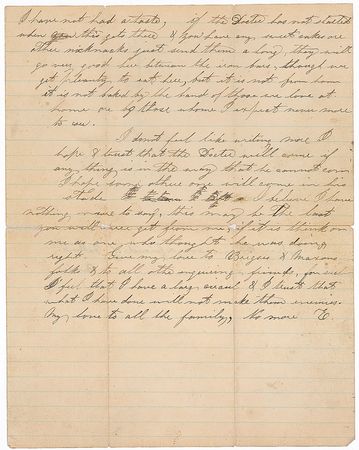 I have not had a taste, if the Docter has not started
when you this gets there & you have any sweet cakes or
other nicknacks just send them a long, they will
go very good here between the iron bars, though we
get pleanty to eat here, but it is not from home
it is not baked by the hand of those we love at
home or by those whom I expect never more
to see.
I don't feel like writing more I
hope & trust that the Docter will come if
any thing is in the way that he cannot come
I hope some others one will come in his
stade I believe I have
nothing more to say, this may be the last
you will ever get from me, if it is think on
me as one who thought he was doing
right. Give my love to Briggs & Maxsons
folks & to all other enquiring friends, for
I feel that I have a large circul & I trust that
what I have done will not make them enemies.
My love to all the family,, No more E.